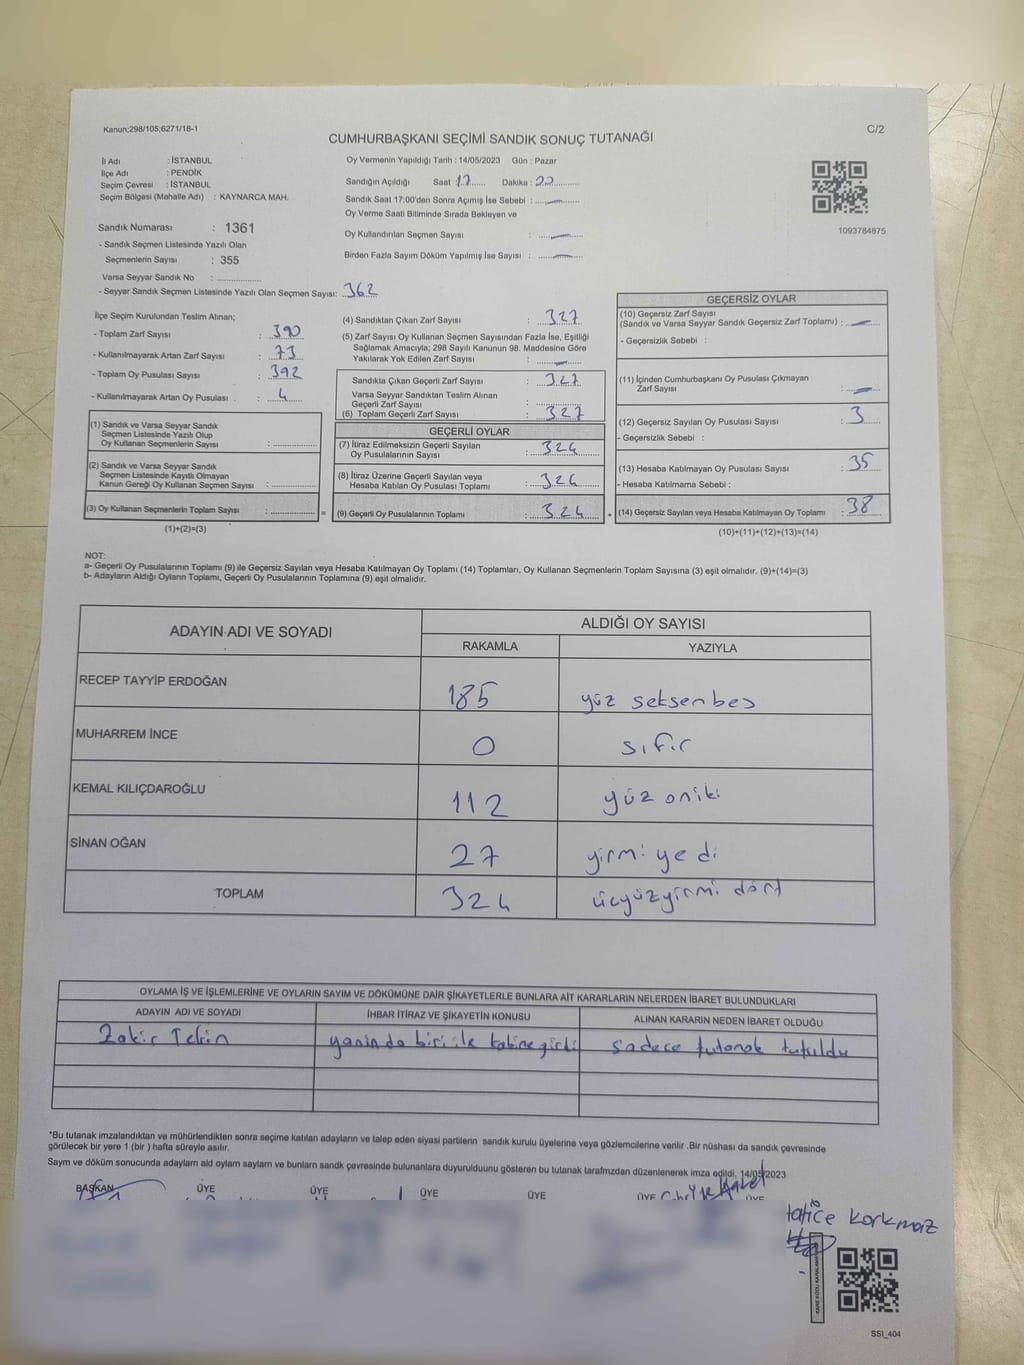 Kanun;298/105;6271/18-1
C/2
CUMHURBAŞKANI SEÇİMİ SANDIK SONUÇ TUTANAĞI
İl Adı : İSTANBUL
İlçe Adı : PENDİK
Seçim Çevresi : İSTANBUL
Seçim Bölgesi (Mahalle Adı) : KAYNARCA MAH.
Sandık Numarası : 1361
- Sandık Seçmen Listesinde Yazılı Olan
Seçmenlerin Sayısı : 355
Varsa Seyyar Sandık No : ..............
- Seyyar Sandık Seçmen Listesinde Yazılı Olan Seçmen Sayısı: 362
Oy Vermenin Yapıldığı Tarih : 14/05/2023 Gün : Pazar
Sandığın Açıldığı Saat 17 Dakika :
Sandık Saat 17:00'den Sonra Açımış İse Sebebi : —
Oy Verme Saati Bitiminde Sırada Bekleyen ve
Oy Kullandırılan Seçmen Sayısı : —
Birden Fazla Sayım Döküm Yapılmış İse Sayısı : —
1093784875
İlçe Seçim Kurulundan Teslim Alınan;
- Toplam Zarf Sayısı : 390
- Kullanılmayarak Artan Zarf Sayısı : 73
- Toplam Oy Pusulası Sayısı : 392
- Kullanılmayarak Artan Oy Pusulası : 4
(1) Sandık ve Varsa Seyyar Sandık
Seçmen Listesinde Yazılı Olup
Oy Kullanan Seçmenlerin Sayısı : ..............
(2) Sandık ve Varsa Seyyar Sandık
Seçmen Listesinde Kayıtlı Olmayan
Kanun Gereği Oy Kullanan Seçmen Sayısı : ..............
(3) Oy Kullanan Seçmenlerin Toplam Sayısı : ..............
(1)+(2)=(3)
(4) Sandıktan Çıkan Zarf Sayısı : 327
(5) Zarf Sayısı Oy Kullanan Seçmen Sayısından Fazla İse, Eşitliği
Sağlamak Amacıyla; 298 Sayılı Kanunun 98. Maddesine Göre
Yakılarak Yok Edilen Zarf Sayısı : —
Sandıkta Çıkan Geçerli Zarf Sayısı : 327
Varsa Seyyar Sandıktan Teslim Alınan
Geçerli Zarf Sayısı : ..............
(6) Toplam Geçerli Zarf Sayısı : 327
GEÇERLİ OYLAR
(7) İtiraz Edilmeksizin Geçerli Sayılan
Oy Pusulalarının Sayısı : 324
(8) İtiraz Üzerine Geçerli Sayılan veya
Hesaba Katılan Oy Pusulası Toplamı : 324
= (9) Geçerli Oy Pusulalarının Toplamı : 324 +
GEÇERSİZ OYLAR
(10) Geçersiz Zarf Sayısı
(Sandık ve Varsa Seyyar Sandık Geçersiz Zarf Toplamı) : —
- Geçersizlik Sebebi :
(11) İçinden Cumhurbaşkanı Oy Pusulası Çıkmayan
Zarf Sayısı : —
(12) Geçersiz Sayılan Oy Pusulası Sayısı : 3
- Geçersizlik Sebebi :
(13) Hesaba Katılmayan Oy Pusulası Sayısı : 35
- Hesaba Katılmama Sebebi :
(14) Geçersiz Sayılan veya Hesaba Katılmayan Oy Toplamı : 38
(10)+(11)+(12)+(13)=(14)
NOT:
a- Geçerli Oy Pusulalarının Toplamı (9) ile Geçersiz Sayılan veya Hesaba Katılmayan Oy Toplamı (14) Toplamları, Oy Kullanan Seçmenlerin Toplam Sayısına (3) eşit olmalıdır. (9)+(14)=(3)
b- Adayların Aldığı Oyların Toplamı, Geçerli Oy Pusulalarının Toplamına (9) eşit olmalıdır.
ADAYIN ADI VE SOYADI ALDIĞI OY SAYISI
RAKAMLA YAZIYLA
RECEP TAYYİP ERDOĞAN 185 yüz seksenbeş
MUHARREM İNCE 0 sıfır
KEMAL KILIÇDAROĞLU 112 yüz oniki
SİNAN OĞAN 27 yirmi yedi
TOPLAM 324 üçyüzyirmi dört
OYLAMA İŞ VE İŞLEMLERİNE VE OYLARIN SAYIM VE DÖKÜMÜNE DAİR ŞİKAYETLERLE BUNLARA AİT KARARLARIN NELERDEN İBARET BULUNDUKLARI
ADAYIN ADI VE SOYADI İHBAR İTİRAZ VE ŞİKAYETİN KONUSU ALINAN KARARIN NEDEN İBARET OLDUĞU
Zakir Tekin yanında biri ile kabine girdi sadece tutanak tutuldu
*Bu tutanak imzalandıktan ve mühürlendikten sonra seçime katılan adayların ve talep eden siyasi partilerin sandık kurulu üyelerine veya gözlemcilerine verilir .Bir nüshası da sandık çevresinde
görülecek bir yere 1 (bir ) hafta süreyle asılır.
Sayım ve döküm sonucunda adaylarn ald oylarn saylarn ve bunlarn sandk çevresinde bulunanlara duyurulduunu gösteren bu tutanak tarafmzdan düzenlenerek imza edildi. 14/05/2023
BAŞKAN ÜYE ÜYE ÜYE ÜYE ÜYE ÜYE
Korkmaz
SSI_404